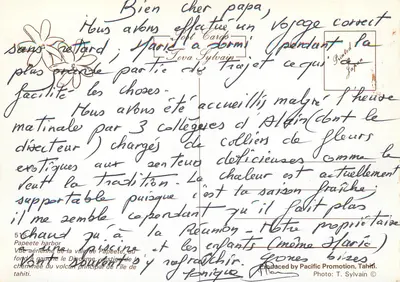 Bien cher papa,
Nous avons effectué un voyage correct
sans retard ; Marie a dormi pendant la
Post Card
Teva Sylvain
plus grande partie du trajet ce qui a
facilité les choses.
Nous avons été accueillis malgré l'heure
matinale par 3 collègues d'Alain (dont le
directeur) chargés de colliers de fleurs
exotiques aux senteurs délicieuses comme le
veut la tradition. La chaleur est actuellement
supportable puisque c'est la saison fraîche ;
il me semble cependant qu'il fait plus
chaud qu'à la Réunion - Notre propriétaire
a une piscine et les enfants (même Marie)
vont souvent s'y rafraîchir. Grosses bises
Monique
Papeete harbor
cheminée du volcan principal de l'île de
tahiti.
Produced by Pacific Promotion, Tahiti.
Photo: T. Sylvain ©